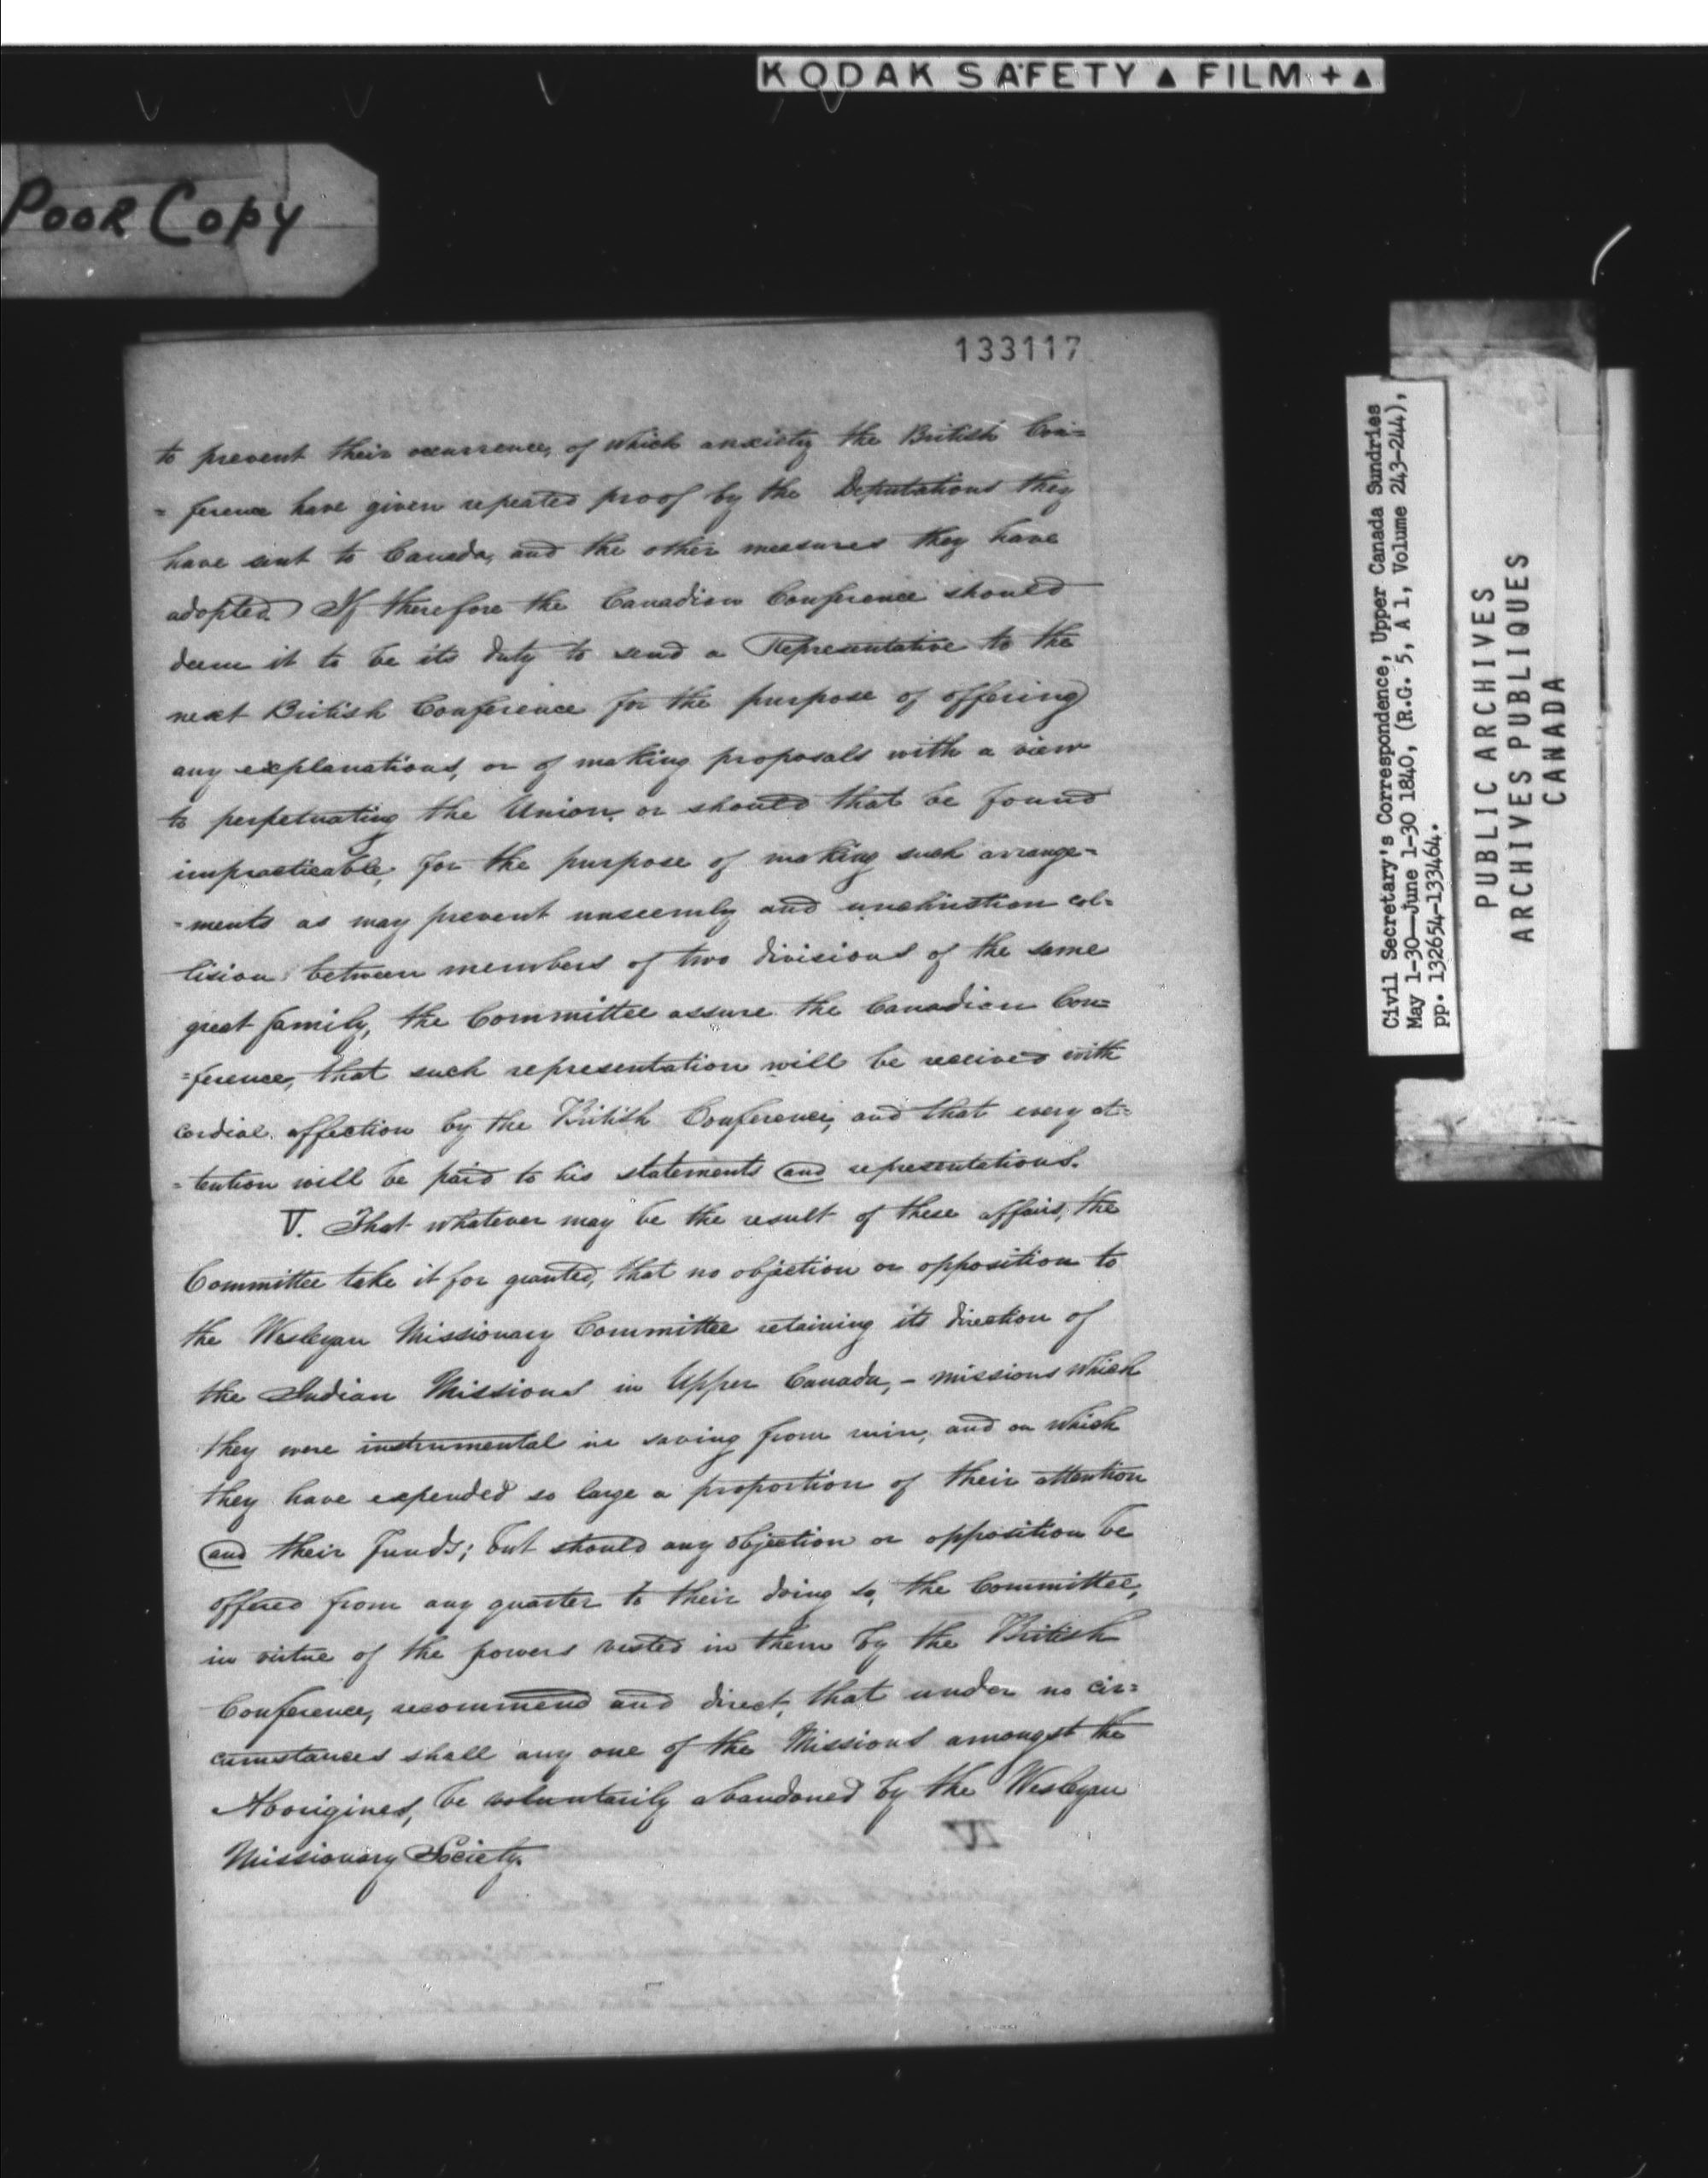 KODAK SAFETY ▲ FILM + ▲
POOR COPY
133117
to prevent their occurrence, of which anxiety the British Con=
= ference have given repeated proof by the Deputations they
have sent to Canada, and the other measures they have
adopted. If therefore the Canadian Conference should
deem it to be its duty to send a Representative to the
next British Conference for the purpose of offering
any explanations, or of making proposals with a view
to perpetuating the Union, or should that be found
impracticable, for the purpose of making such arrange=
=ments as may prevent unseemly and unchristian col=
lision between members of two divisions of the same
great family, the Committee assure the Canadian Con=
=ference, that such representation will be received with
cordial affection by the British Conference, and that every at=
=tention will be paid to his statements and representations.
V. That whatever may be the result of these affairs, the
Committee take it for granted, that no objection or opposition to
the Wesleyan Missionary Committee retaining its direction of
the Indian Missions in Upper Canada, – missions which
they were instrumental in saving from ruin, and on which
they have expended so large a proportion of their attention
and their funds; but should any objection or opposition be
offered from any quarter to their doing so, the Committee,
in virtue of the powers vested in them by the British
Conference, recommend and direct, that under no cir=
cumstances shall any one of the Missions amongst the
Aborigines, be voluntarily abandoned by the Wesleyan
Missionary Society.
IV
Civil Secretary's Correspondence, Upper Canada Sundries
May 1-30—June 1-30 1840, (R.G. 5, A 1, Volume 243-244),
pp. 132654-133464.
PUBLIC ARCHIVES
ARCHIVES PUBLIQUES
CANADA